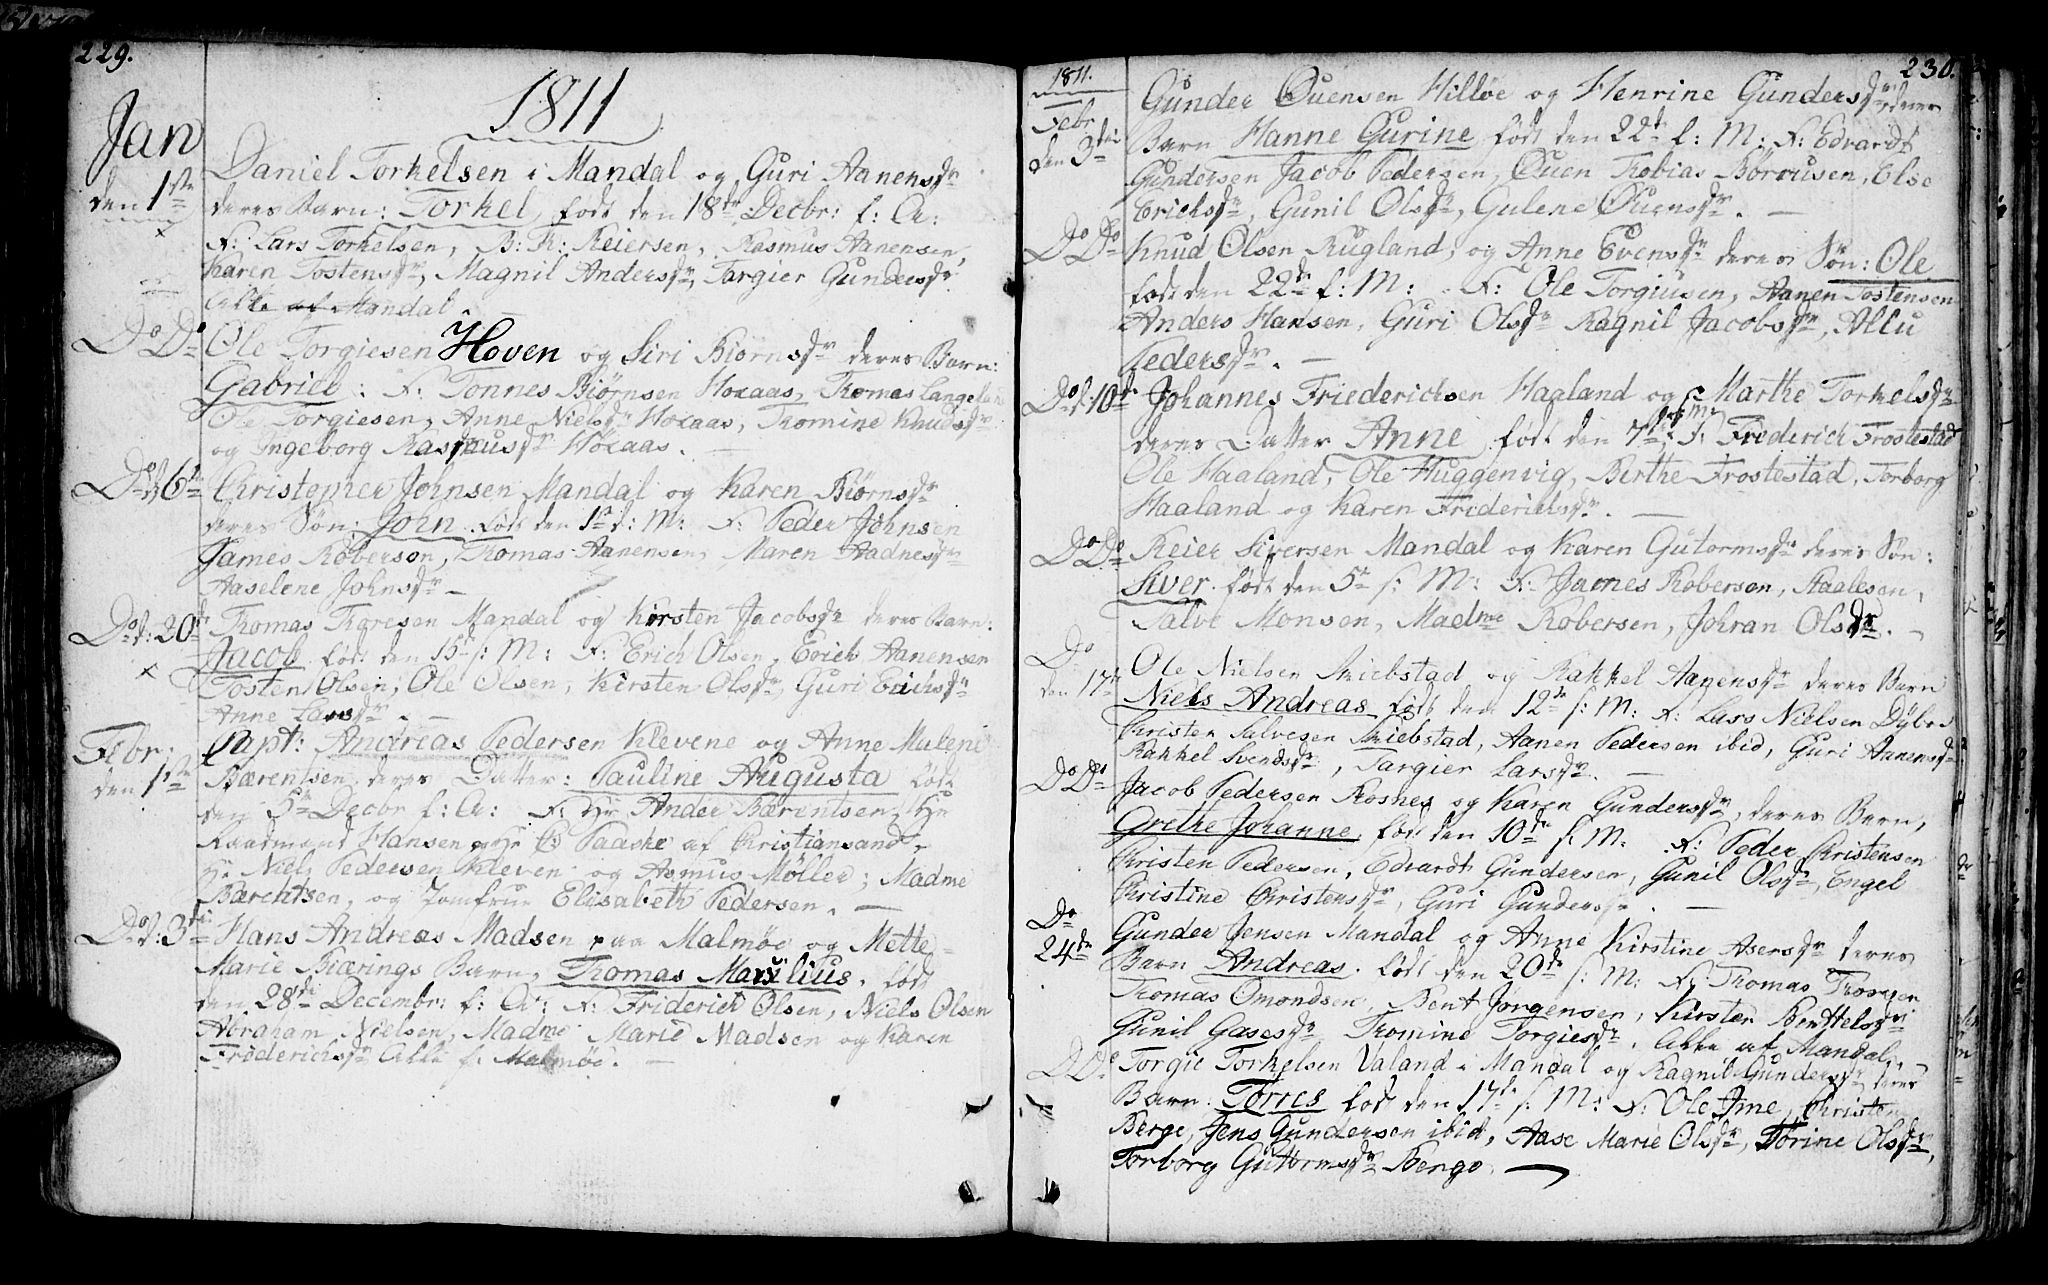 229.
1811
Jan
den 1ste
Daniel Torkelsen i Mandal og Guri Aanensdr
deres Barn: Torkel, født den 18de Decbr: f: A:
F: Lars Torkelsen, B: K: Reiersen, Rasmus Aanensen,
Karen Tostensdr, Magnil Andersdr, Targier Gundersdr
alle af Mandal
Do Do
Ole Torgiesen Hoven og Siri Biørnsdr deres Barn:
Gabriel: F: Tønnes Biørnsen Holaas, Thomas Langeland
Ole Torgiesen, Anne Nielsdr Holaas, Thomine Knudsdr
og Ingeborg Rasmusdr Holaas. —
Do d: 6te
Christopher Johnsen Mandal og Karen Biørnsdr
deres Søn: John født den 1ste d: M: F: Peder Johnsen
James Roberson, Thomas Aanensen, Maren Aadnesdr
Aaselene Johnsdr —
Do d: 20de
Thomas Taresen Mandal og Kirsten Jacobsdr deres Barn:
Jacob født den 15de s: M: F: Erich Olsen, Erich Aanensen
Tosten Olsen, Ole Olsen, Kirsten Olsdr, Guri Erichsdr
Anne Larsdr. —
Febr:
den 1ste
Capt: Andreas Pedersen Klevene og Anne Malene
Bærentsen deres Datter: Pauline Augusta født
den 5te Decbr f: A: F: Hr Ander Bærentsen, Hr
Raadmand Hansen og Hr P: Paaske af Christiansand,
Hr Niels Pedersen Kleven og Asmus Møller; Madme
Bærentsen, og Jomfrue Elisabeth Pedersen. —
Do d: 3die
Hans Andreas Madsen paa Malmøe og Mette
Marie Biærings Barn, Thomas Marilius, født
den 28de Decembr: f: A: F: Friderich Olsen, Niels Olsen
Abraham Nielsen, Madme Marie Madsen og Karen
Friderichsdr alle f: Malmøe. —
230.
1811.
Febr
den 3die
Gunder Ouensen Hilløe og Henrine Gundersdr, deres
Barn Hanne Gurine født den 22de f: M: F: Edvardt
Gundersen Jacob Pedersen, Ouen Tobias Børrusen, Else
Erichsdr, Gunil Olsdr, Gulene Ouensdr. —
Do Do
Knud Olsen Rugland, og Anne Evensdr deres Søn: Ole
født den 22de f: M: F: Ole Torgiusen, Aanen Tostensen
Anders Hansen, Guri Olsdr Ragnil Jacobsdr, Allu
Pedersdr. —
Do d: 10de
Johannes Friederichsen Haaland og Marthe Torkelsdr
deres Datter Anne født den 7de s: M: F: Friderich Frostestad
Ole Haaland, Ole Huggenvig, Berthe Frostestad, Torborg
Haaland og Karen Friderichsdr. —
Do Do
Reier Siversen Mandal og Karen Gutormsdr deres Søn:
Siver født den 5te s: M: F: James Roberson, Staalesen,
Salve Monsen, Madme Robersen, Johran Olsdr. —
Do
den 17de
Ole Nielsen Skiebstad og Rakkel Aanensdr deres Barn
Niels Andreas født den 12te s: M: F: Lars Nielsen Dybe
Christen Salvesen Skiebstad, Aanen Pedersen ibid, Guri Aanensdr
Rakkel Svendsdr, Targier Larsdr. —
Do Do
Jacob Pedersen Rosnes og Karen Gundersdr, deres Barn,
Grethe Johanne, født den 10de s: M: F: Peder Christensen
Christen Pedersen, Edvardt Gundersen, Gunil Olsdr, Engel
Christine Christensdr, Guri Gundersdr. —
Do
24de
Gunder Jensen Mandal og Anne Kirstine Asersdr deres
Barn Andreas født den 20de s: M: F: Thomas
Thomas Omondsen, Bent Jørgensen, Kirsten Benttelsdr
Gunil Gasesdr Thomine Torgiesdr. alle af Mandal. —
Do Do
Torgie Torkelsen Valand i Mandal og Ragnil Gundersdr deres
Barn Torres født den 17de s: M: F: Ole Ime, Christen
Berge, Jens Gundersen ibid, Aase Marie Olsdr, Torine Olsdr,
Torborg Gutormsdr Berge —